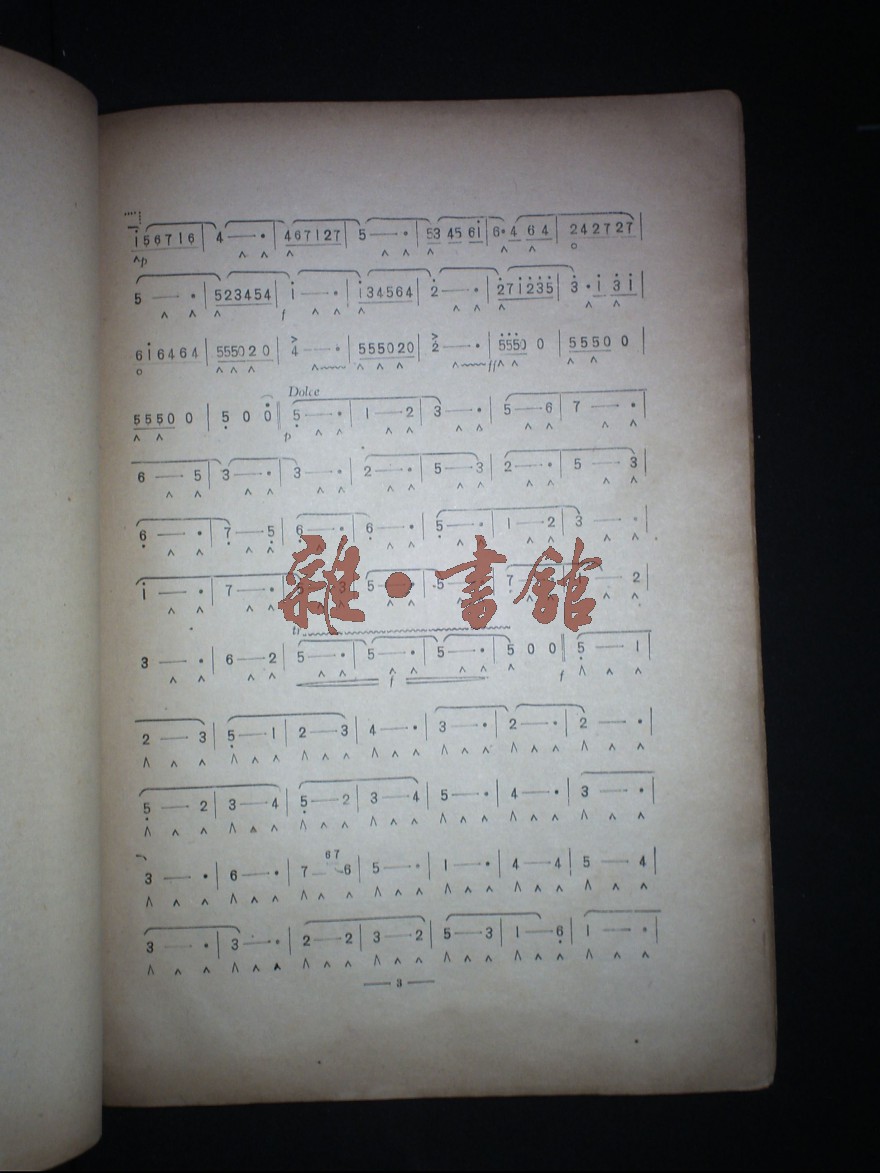 i̇56716 | 4 — · | 467127 | 5 — · | 53 45 6i̇ | 6· 4 6 4 | 242727 |
p
5 — · | 523454 | i̇ — · | i̇34564 | 2̇ — · | 2̇7i̇2̇3̇5̇ | 3̇ · i̇ 3̇ i̇ |
f
6i̇6464 | 555020 | 4 — · | 555020 | 2̇ — · | 5̇5̇5̇0 0 | 5550 0 |
ff
Dolce
5550 0 | 5̣ 0 0 ‖ 5̣ — · | 1 — 2 | 3 — · | 5 — 6 | 7 — · |
p
6 — 5 | 3 — · | 3 — · | 2 — · | 5 — 3 | 2 — · | 5 — 3 |
6̣ — · | 7̣ — 5̣ | 6̣ — · | 6̣ — · | 5̣ — · | 1 — 2 | 3 — · |
雜·書館
i̇ — · | 7 — · | 5 — 3 | 5 — · | 5 — | 7̣ — | 2 |
tr
3 — · | 6 — 2 | 5 — · | 5 — · | 5 — · | 5 0 0 ‖ 5̣ — 1 |
f f
2 — 3 | 5̣ — 1 | 2 — 3 | 4 — · | 3 — · | 2 — · | 2 — · |
5̣ — 2 | 3 — 4 | 5̣ — 2 | 3 — 4 | 5 — · | 4 — · | 3 — · |
67
3 — · | 6 — · | 7 — 6 | 5 — · | 1 — · | 4 — 4 | 5 — 4 |
3 — · | 3 — · | 2 — 2 | 3 — 2 | 5 — 3 | 1 — 6̣ | 1 — · |
— 3 —